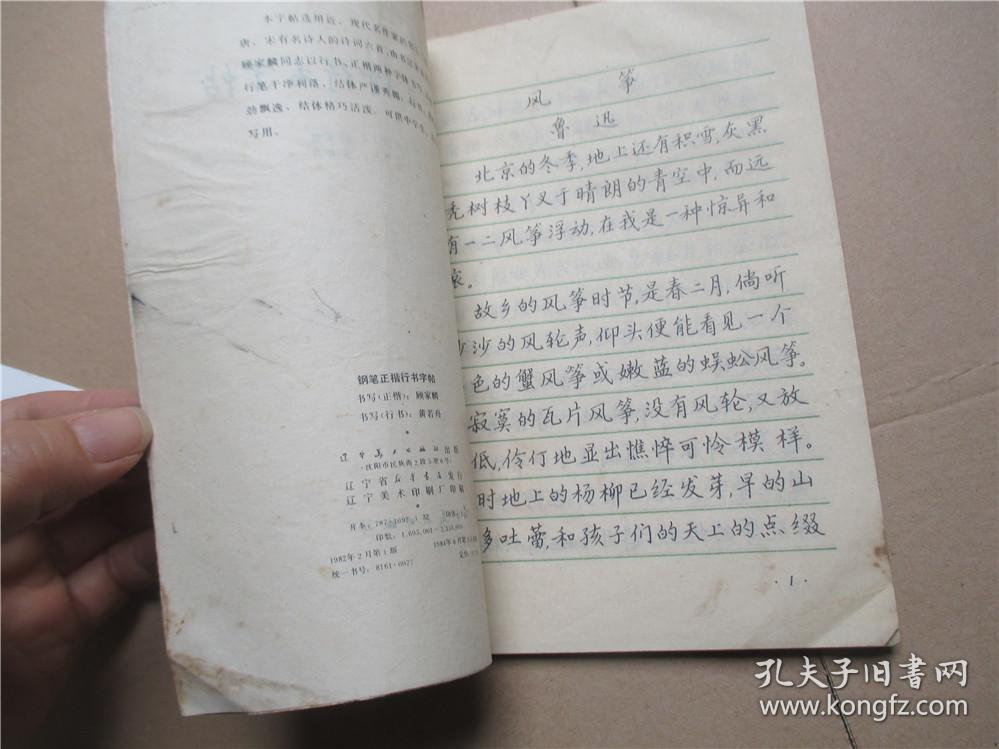 本字帖选用近、现代名作家的
唐、宋有名诗人的诗词六首,由书
顾家麟同志以行书、正楷两种字体
行笔干净利落,结体严谨秀
劲飘逸,结体精巧活泼,可供中学生
写用。
钢笔正楷行书字帖
书写(正楷):顾家麟
书写(行书):黄若舟
辽宁美术出版社出版
(沈阳市民族街2段5里6号)
辽宁省新华书店发行
辽宁美术印刷厂印刷
开本:787×1092 1/32 印张:1
印数:1,695,001-
1982年2月第1版 1984年6月第
统一书号:8161·0077 定价:
风筝
鲁迅
北京的冬季,地上还有积雪,灰黑
秃树枝丫叉于晴朗的青空中,而远
有一二风筝浮动,在我是一种惊异和
哀。
故乡的风筝时节,是春二月,倘听
沙沙的风轮声,仰头便能看见一个
色的蟹风筝或嫩蓝的蜈蚣风筝。
寂寞的瓦片风筝,没有风轮,又放
低,伶仃地显出憔悴可怜模样。
时地上的杨柳已经发芽,早的山
多吐蕾,和孩子们的天上的点缀
·1·
孔夫子旧书网
www.kongfz.com